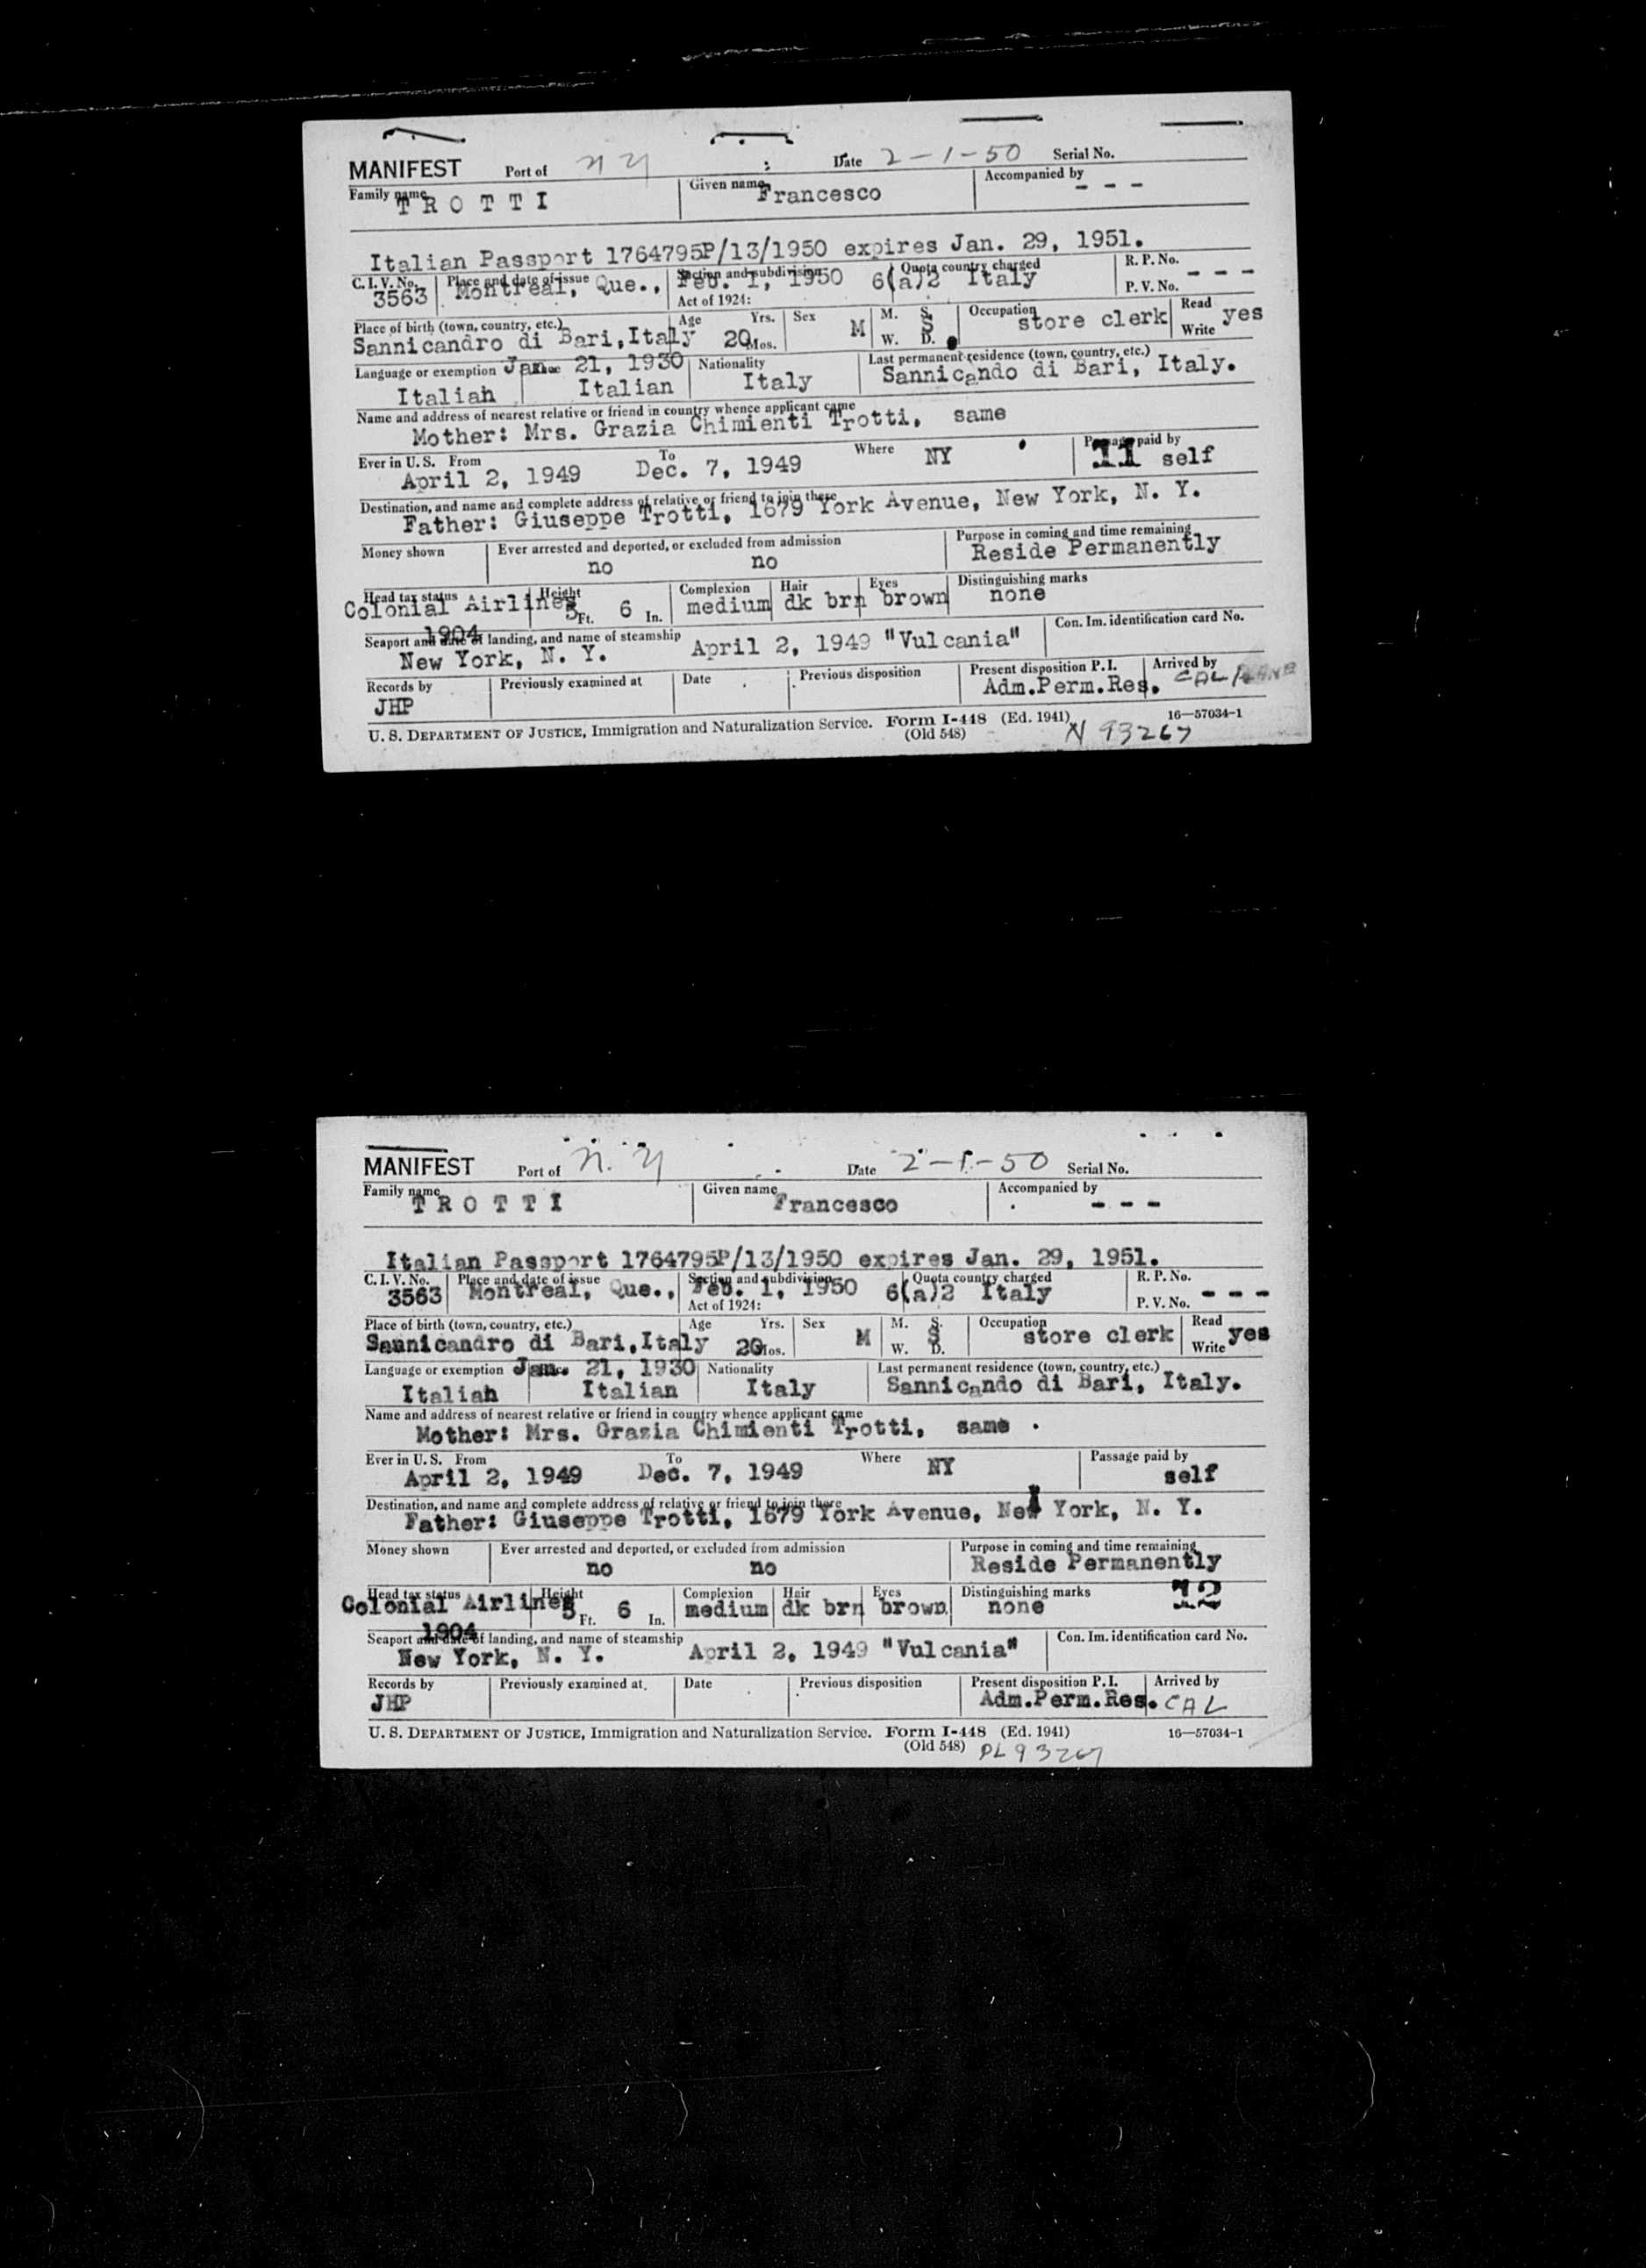 MANIFEST Port of N Y Date 2-1-50 Serial No.
Family name TROTTI Given name Francesco Accompanied by - - -
Italian Passport 1764795P/13/1950 expires Jan. 29, 1951.
C. I. V. No. Place and date of issue Section and subdivision Quota country charged R. P. No.
3563 Montreal, Que., Feb. 1, 1950 6(a)2 Italy - - -
Act of 1924: P. V. No.
Place of birth (town, country, etc.) Age Yrs. Sex M. S. Occupation Read
Sannicandro di Bari, Italy 20 Mos. M W. S D. store clerk Write yes
Language or exemption Jan. 21, 1930 Nationality Last permanent residence (town, country, etc.)
Italian Italian Italy Sannicando di Bari, Italy.
Name and address of nearest relative or friend in country whence applicant came
Mother: Mrs. Grazia Chimienti Trotti, same
Ever in U. S. From To Where Passage paid by
April 2, 1949 Dec. 7, 1949 NY 11 self
Destination, and name and complete address of relative or friend to join there
Father: Giuseppe Trotti, 1679 York Avenue, New York, N. Y.
Money shown Ever arrested and deported, or excluded from admission Purpose in coming and time remaining
no no Reside Permanently
Head tax status Height Complexion Hair Eyes Distinguishing marks
Colonial Airlines 5 Ft. 6 In. medium dk brn brown none
1904
Seaport and date of landing, and name of steamship Con. Im. identification card No.
New York, N. Y. April 2, 1949 "Vulcania"
Records by Previously examined at Date Previous disposition Present disposition P. I. Arrived by
JHP Adm.Perm.Res. CAL PLANE
U. S. DEPARTMENT OF JUSTICE, Immigration and Naturalization Service. Form I-448 (Ed. 1941) 16—57034-1
(Old 548) 93267
MANIFEST Port of N. Y Date 2-1-50 Serial No.
Family name TROTTI Given name Francesco Accompanied by - - -
Italian Passport 1764795P/13/1950 expires Jan. 29, 1951.
C. I. V. No. Place and date of issue Section and subdivision Quota country charged R. P. No.
3563 Montreal, Que., Feb. 1, 1950 6(a)2 Italy - - -
Act of 1924: P. V. No.
Place of birth (town, country, etc.) Age Yrs. Sex M. S. Occupation Read
Sannicandro di Bari, Italy 20 Mos. M W. S D. store clerk Write yes
Language or exemption Jan. 21, 1930 Nationality Last permanent residence (town, country, etc.)
Italian Italian Italy Sannicando di Bari, Italy.
Name and address of nearest relative or friend in country whence applicant came
Mother: Mrs. Grazia Chimienti Trotti, same
Ever in U. S. From To Where Passage paid by
April 2, 1949 Dec. 7, 1949 NY self
Destination, and name and complete address of relative or friend to join there
Father: Giuseppe Trotti, 1679 York Avenue, New York, N. Y.
Money shown Ever arrested and deported, or excluded from admission Purpose in coming and time remaining
no no Reside Permanently
Head tax status Height Complexion Hair Eyes Distinguishing marks 12
Colonial Airlines 5 Ft. 6 In. medium dk brn brown none
1904
Seaport and date of landing, and name of steamship Con. Im. identification card No.
New York, N. Y. April 2, 1949 "Vulcania"
Records by Previously examined at Date Previous disposition Present disposition P. I. Arrived by
JHP Adm.Perm.Res. CAL
U. S. DEPARTMENT OF JUSTICE, Immigration and Naturalization Service. Form I-448 (Ed. 1941) 16—57034-1
(Old 548) PL 93267